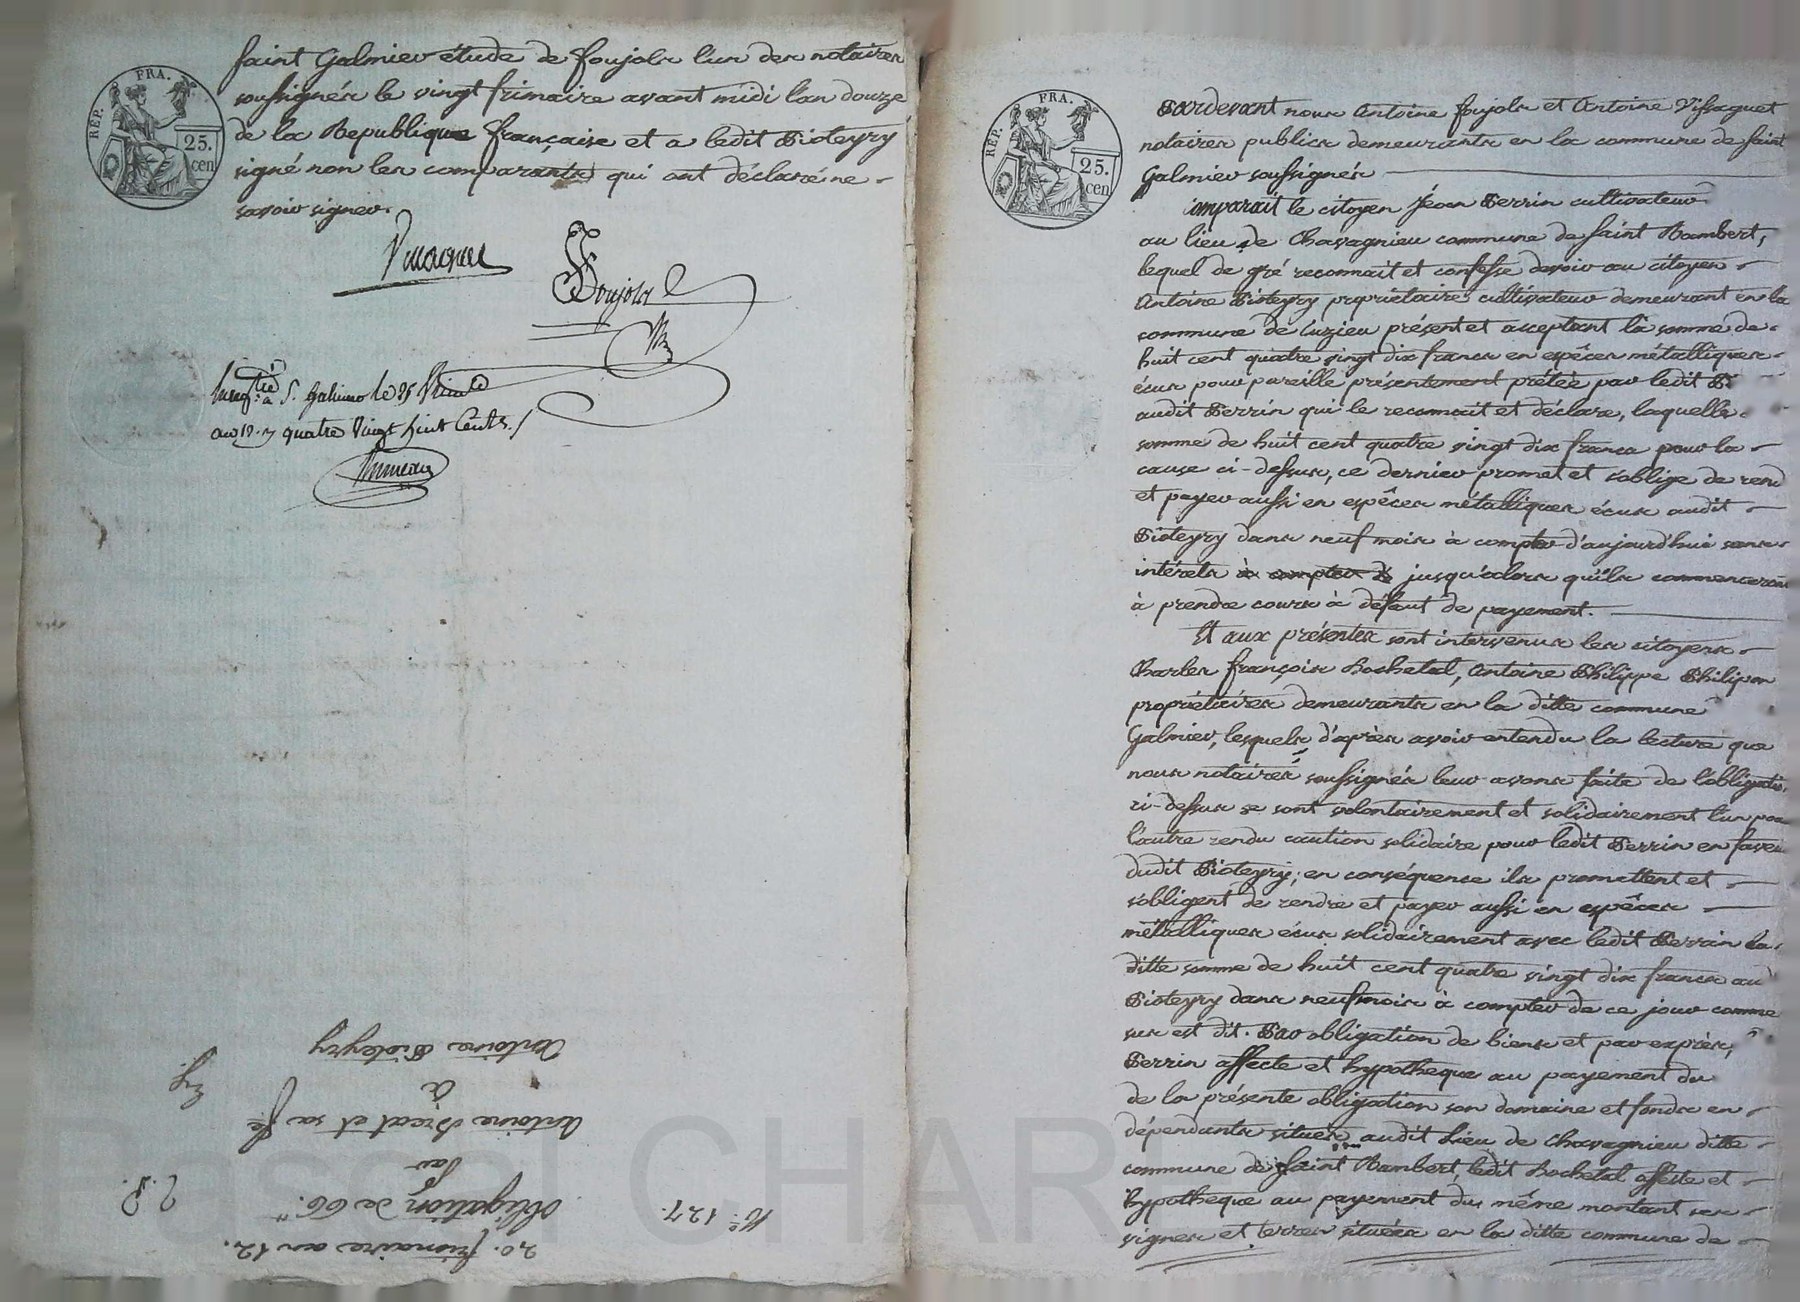 RÉP. FRA.
25.
cen
saint Galmier étude de foujols l'un des notaires
soussignés le vingt frimaire avant midi l'an douze
de la Republique française et a ledit Bioteyry
signé non les comparants qui ont déclaré ne
savoir signer.
Foujols
à S. Galmier le 25
an 12. quatre Vingt huit Cents.
20. frimaire an 12.
N.° 127.
obligation de 66.
2. P.
Par
Antoine et sa fe
à
Antoine Bioteyry
RÉP. FRA.
25.
cen
Pardevant nous Antoine foujols et Antoine Vissaguet
notaires publics demeurants en la commune de saint
Galmier soussignés
Comparait le citoyen Jean Perrin cultivateur
au lieu de Chavagnieu commune de saint Rambert,
lequel de gré reconnait et confesse devoir au citoyen
Antoine Bioteyry propriétaire cultivateur demeurant en la
commune de Cuzieu présent et acceptant la somme de
huit cent quatre vingt dix francs en espêces métalliques
écus pour pareille présentement prêtée par ledit Bi
audit Perrin qui le reconnait et déclare, laquelle
somme de huit cent quatre vingt dix francs pour la
cause ci-dessus, ce dernier promet et s'oblige de rend
et payer aussi en espêces métalliques écus audit
Bioteyry dans neuf mois à compter d'aujourd'hui sans
intérets à compter d jusqu'alors qu'ils commenceron
à prendre cours à défaut de payement.
Et aux présentes sont intervenus les citoyens
Charles françois Rochetal, Antoine Philippe Philipon
propriétaires demeurants en la ditte commune
Galmier, lesquels d'après avoir entendu la lecture que
nous notaires soussignés leur avons faite de l'obligatio
ci-dessus se sont volontairement et solidairement l'un pou
l'autre rendu caution solidaire pour ledit Perrin en faveu
dudit Bioteyry; en conséquence ils promettent et
s'obligent de rendre et payer aussi en espêces
métalliques écus solidairement avec ledit Perrin la
ditte somme de huit cent quatre vingt dix francs au
Bioteyry dans neuf mois à compter de ce jour comme
sus est dit. Par obligation de biens et par exprès,
Perrin affecte et hypotheque au payement du
de la présente obligation son domaine et fonds en
dépendants situés audit Lieu de Chavagnieu ditte
commune de saint Rambert, ledit Rochetal affecte et
hypotheque au payement du même montant ses
vignes et terres situées en la ditte commune de
CHAR